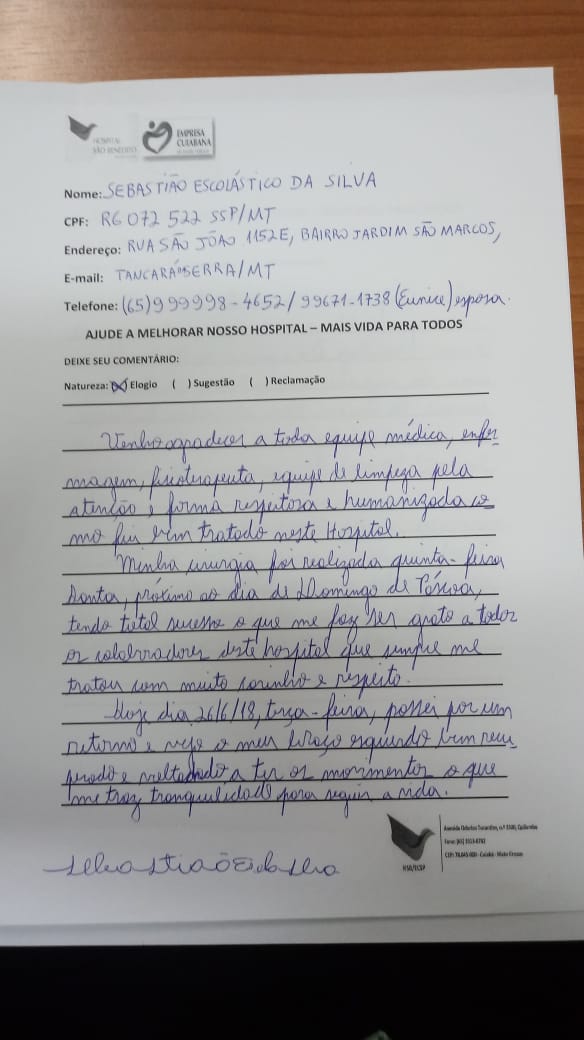 HOSPITAL
SÃO BENEDITO
EMPRESA
CUIABANA
Nome: SEBASTIÃO ESCOLÁSTICO DA SILVA
CPF: RG 072 522 SSP/MT
Endereço: RUA SÃO JOÃO 1152E, BAIRRO JARDIM SÃO MARCOS,
E-mail: TANGARÁ DA SERRA/MT
Telefone: (65) 999998-4652 / 99671-1738 (Eunice) esposa.
AJUDE A MELHORAR NOSSO HOSPITAL – MAIS VIDA PARA TODOS
DEIXE SEU COMENTÁRIO:
Natureza: (X) Elogio ( ) Sugestão ( ) Reclamação
Venho agradecer a toda equipe médica, enfer-
magem, fisioterapeuta, equipe de limpeza pela
atenção e forma respeitosa e humanizada co-
mo fui bem tratado neste Hospital.
Minha cirurgia foi realizada quinta-feira
Santa, próximo ao dia de Domingo de Páscoa,
tendo total sucesso o que me faz ser grato a todos
os colaboradores deste hospital que sempre me
tratou com muito carinho e respeito.
Hoje dia 26/6/18, terça-feira, passei por um
retorno e vejo o meu braço esquerdo bem recu
perado e voltando a ter os movimentos o que
me traz tranquilidade para seguir a vida.
HSB/ECSP
CEP: 78.045-000 - Cuiabá - Mato Grosso